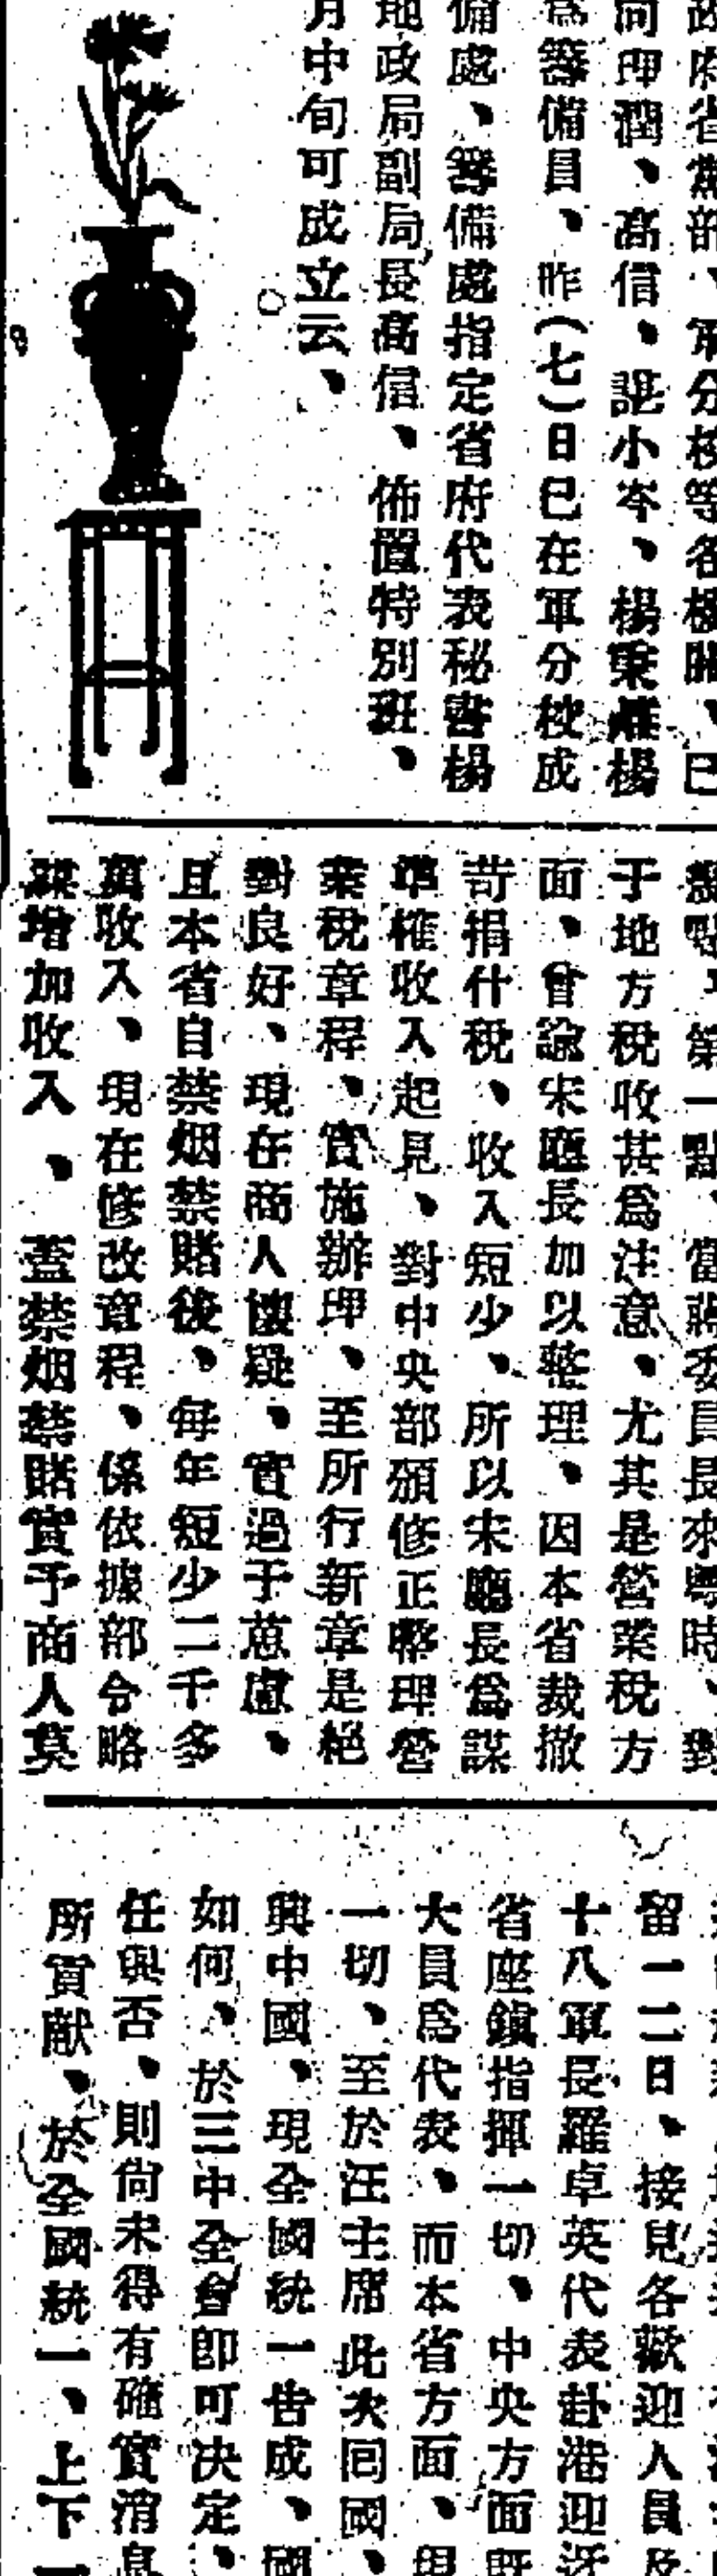 政府省黨部、軍分校等各機關、已
何理潤、高信、諶小岑、楊秉離楊
爲籌備員、昨(七)日已在軍分校成
備處、籌備處指定省府代表秘書楊
地政局副局長高信、佈置特別班、
月中旬可成立云、
第一點、當蔣委員長來粵時、對
于地方稅收甚爲注意、尤其是營業稅方
面、曾諭宋廳長加以整理、因本省裁撤
苛捐什稅、收入短少、所以宋廳長爲謀
準榷收入起見、對中央部頒修正整理營
業稅章程、實施辦理、至所行新章是絕
對良好、現在商人懷疑、實過于蒠慮、
且本省自禁烟禁賭後、每年短少二千多
萬收入、現在修改章程、係依據部令略
謀增加收入、蓋禁烟禁賭實予商人莫
留一二日、接見各歡迎人員及
十八軍長羅卓英代表赴港迎迓
省座鎮指揮一切、中央方面旣
大員爲代表、而本省方面、現
一切、至於汪主席此次回國、
興中國、現全國統一告成、國
如何、於三中全會卽可决定、
任與否、則尙未得有確實消息
所貢献、於全國統一、上下一